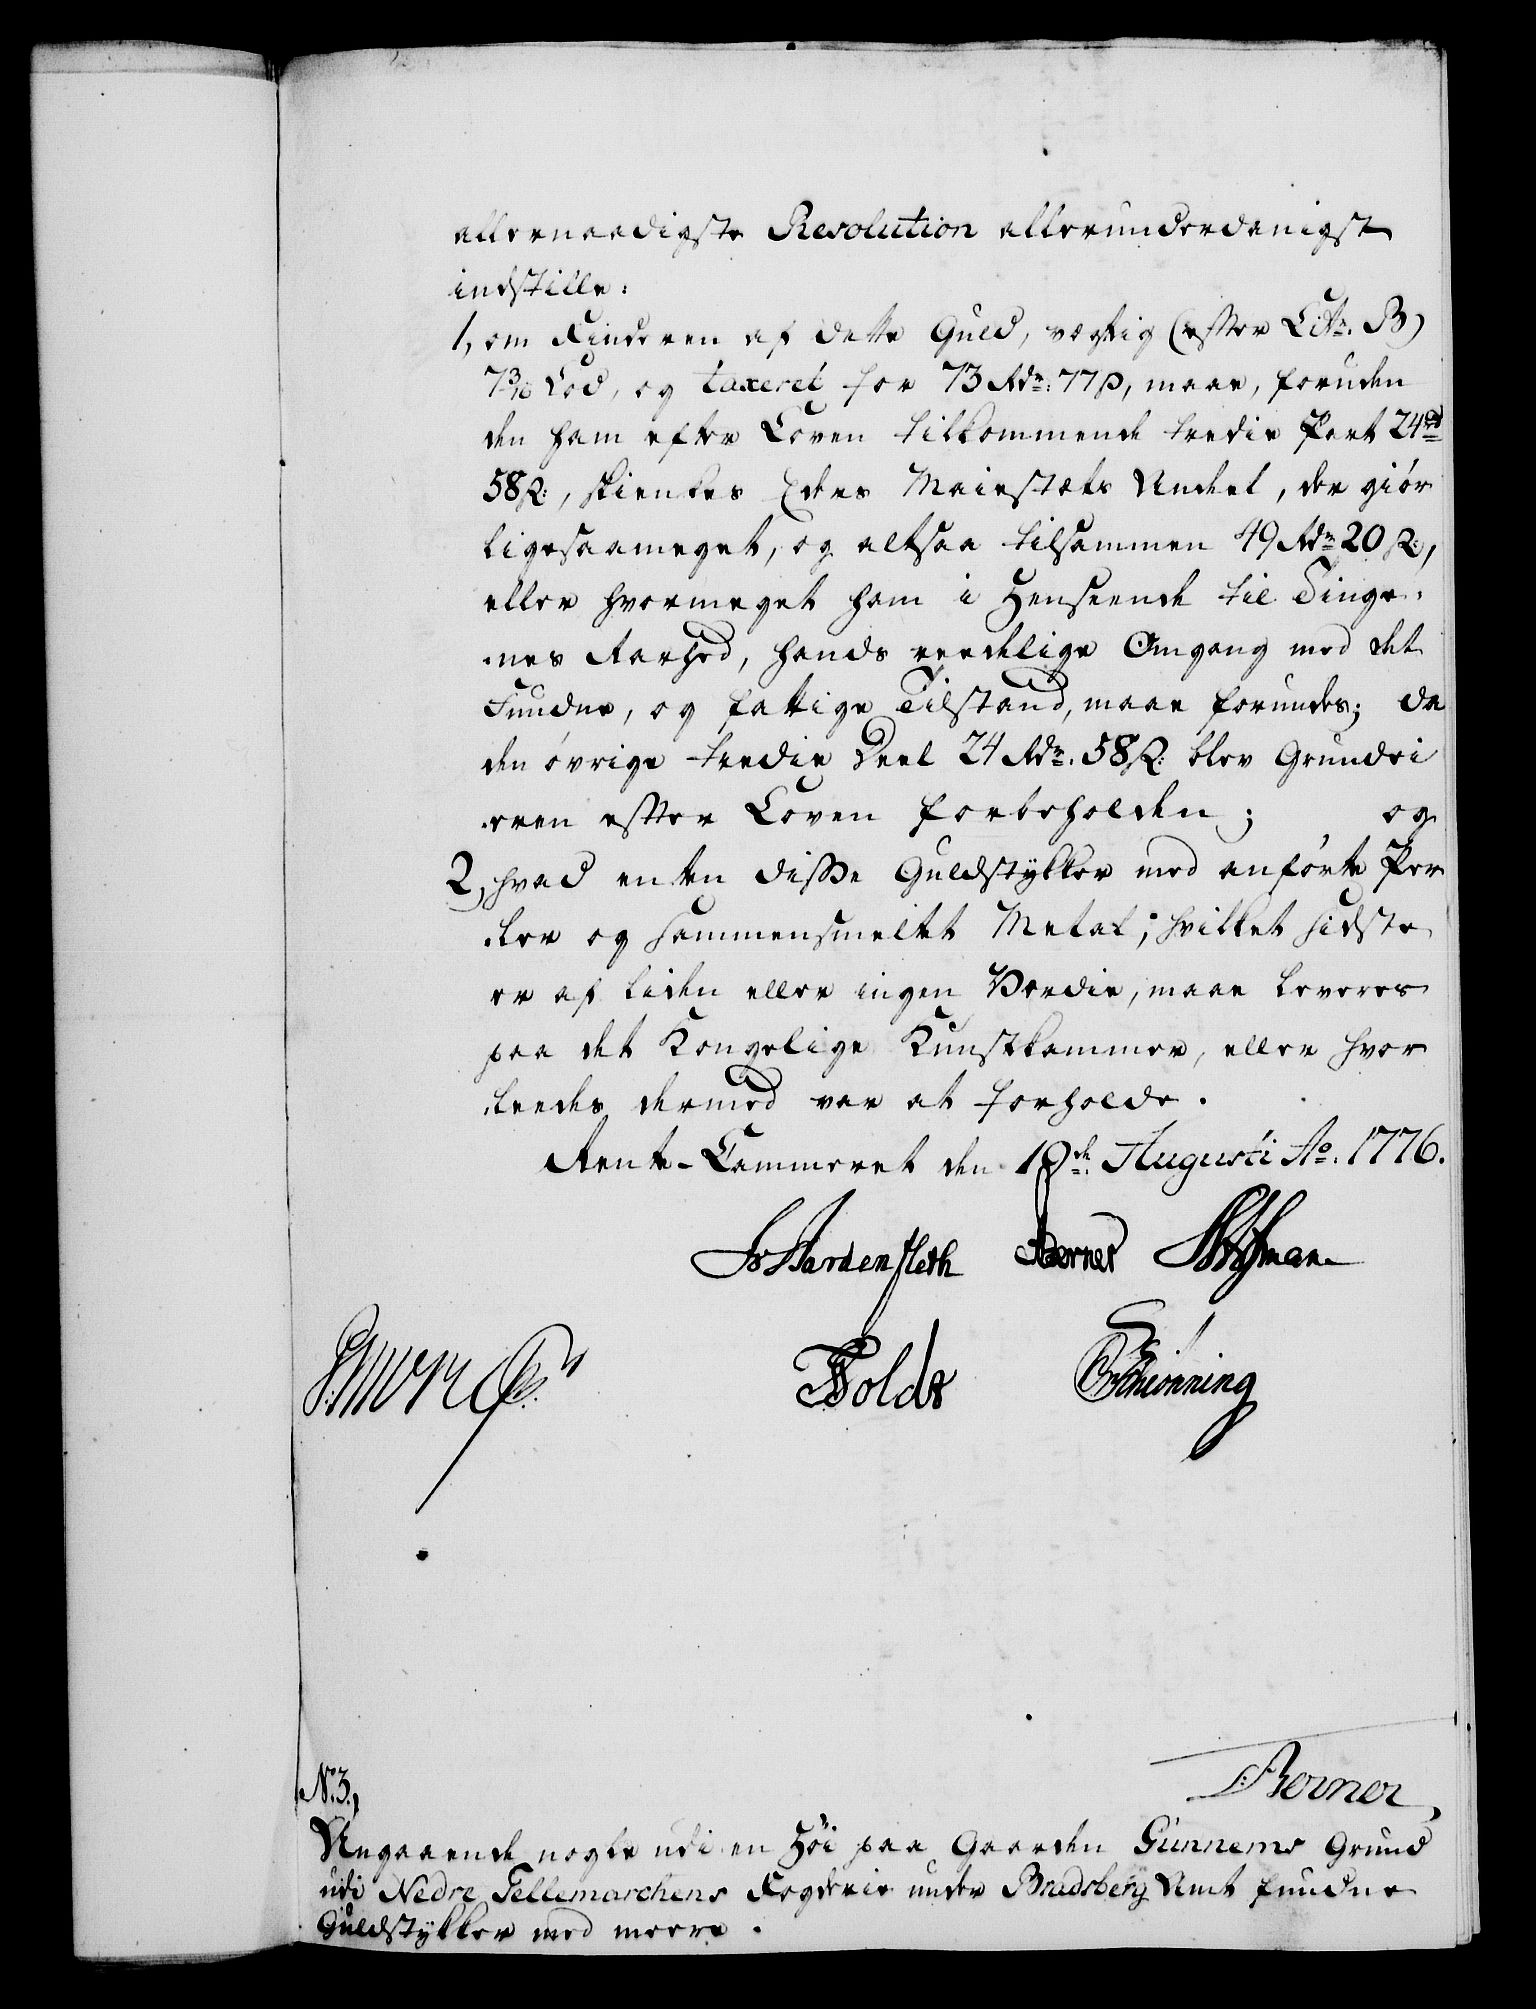 allernaadigste Resolution allerunderdanigst
indstille:
1, om Finderen af dette Guld, vægtig (efter Litr. B)
7 3/16 Lod, og taxeret for 73 Rdr: 77 ß, maae, foruden
den ham efter Loven tilkommende tredie Part 24 rd
58 ß:, skienkes Eders Maiestæts Andeel, der giör
ligesaameget, og altsaa tilsammen 49 Rdr 20 ß:,
eller hvormeget ham i Henseende til Tinge-
nes Rarhed, hands reedelige Omgang med det
Fundne, og fattige Tilstand, maae forundes; da
den övrige tredie Deel 24 Rdr. 58 ß: blev Grundei
eren efter Loven forbeholden; og
2, hvad enten disse Guldstykker med anförte Per
ler og sammensmeltet Metal; hvilket sidste
er af liden eller ingen Værdie, maae leveres
paa det Kongelige Kunstkammer, eller hvor
leedes dermed var at forholde.
Rente-Cammeret den 18de Augusti Ao. 1776.
Hardenfleth Berner Hofman
Holdt Schiönning
No. 3.
Berner
Angaaende nogle udi en Höi paa Gaarden Gunnems Grund
udi Nedre Tellemarchens Fogderie under Bradsberg Amt fundne
Guldstykker med meere.